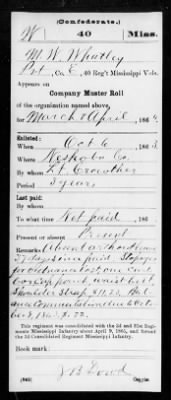 (Confederate.)
W 40 Miss.
M. W. Whatley
Pvt., Co. E, 40 Reg't Mississippi Vols.
Appears on
Company Muster Roll
of the organization named above,
for March & April, 186
Enlisted:
When Oct 6, 186
Where Neshoba Co.
By whom Lt Crowther
Period 3 years
Last paid:
By whom
To what time Not paid, 186
Present or absent Present
Remarks: Absent without leave
days since paid. Stoppage
for ordnance lost one cart
box cap pouch, waist belt,
Shoulder Strap,
Commutation due
This regiment was consolidated with the 3d and 31st Regiments Mississippi Infantry about April 9, 1865, and formed the 3d Consolidated Regiment Mississippi Infantry.
Book mark:
J B Dowd
(642) Copyist.